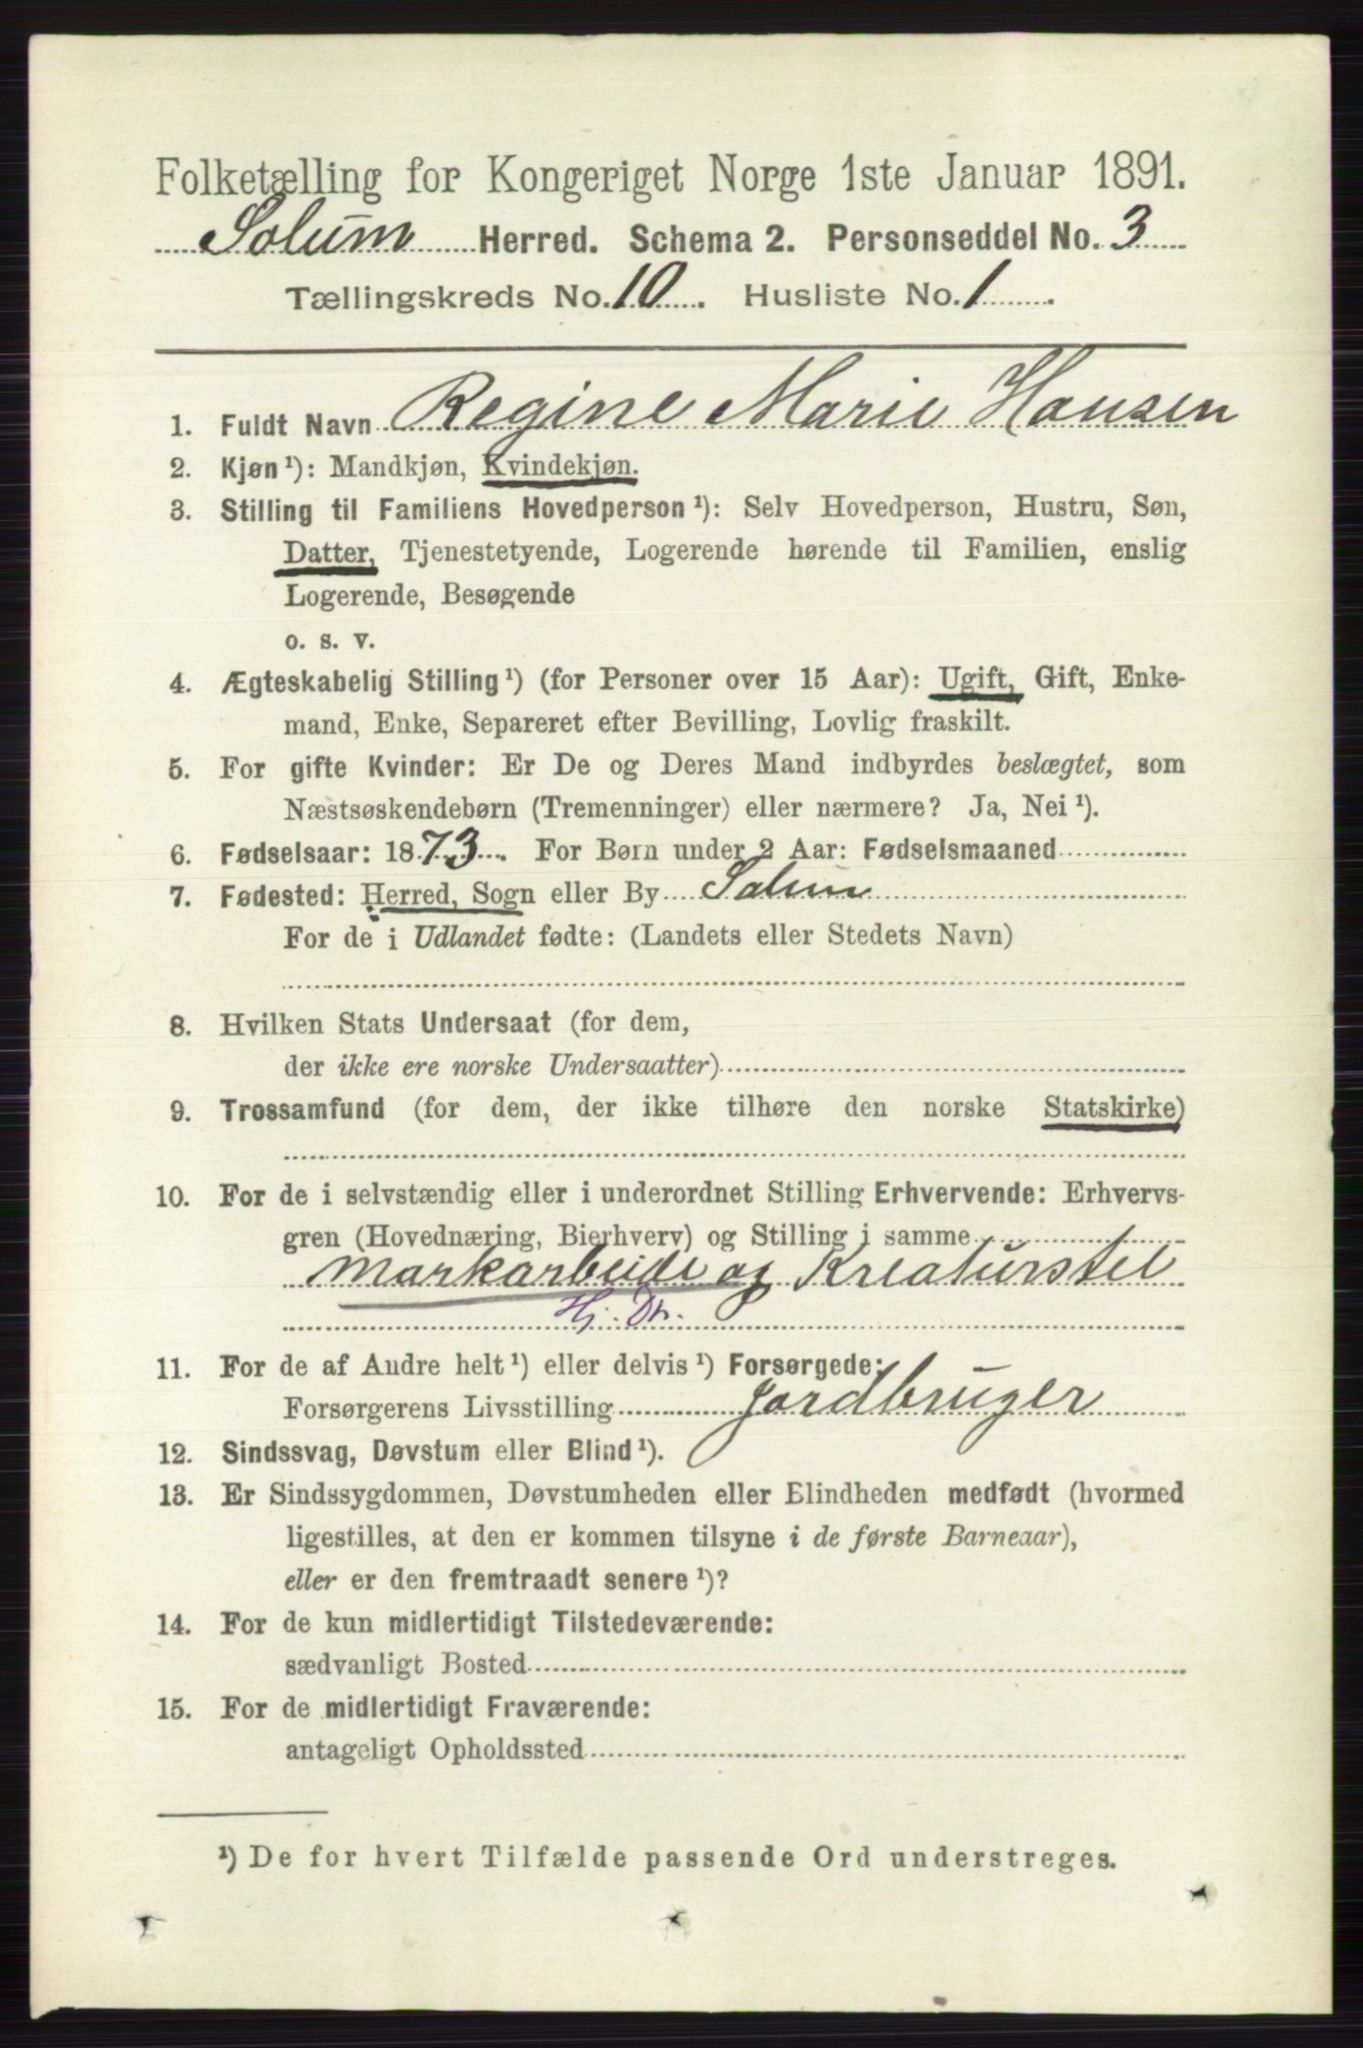 Folketælling for Kongeriget Norge 1ste Januar 1891.
Solum Herred. Schema 2. Personseddel No. 3
Tællingskreds No. 10. Husliste No. 1.
1. Fuldt Navn Regine Marie Hansen
2. Kjøn ¹): Mandkjøn, Kvindekjøn.
3. Stilling til Familiens Hovedperson ¹): Selv Hovedperson, Hustru, Søn,
Datter, Tjenestetyende, Logerende hørende til Familien, enslig
Logerende, Besøgende
o. s. v.
4. Ægteskabelig Stilling ¹) (for Personer over 15 Aar): Ugift, Gift, Enke-
mand, Enke, Separeret efter Bevilling, Lovlig fraskilt.
5. For gifte Kvinder: Er De og Deres Mand indbyrdes beslægtet, som
Næstsøskendebørn (Tremenninger) eller nærmere? Ja, Nei ¹).
6. Fødselsaar: 1873. For Børn under 2 Aar: Fødselsmaaned
7. Fødested: Herred, Sogn eller By Solum
For de i Udlandet fødte: (Landets eller Stedets Navn)
8. Hvilken Stats Undersaat (for dem,
der ikke ere norske Undersaatter)
9. Trossamfund (for dem, der ikke tilhøre den norske Statskirke)
10. For de i selvstændig eller i underordnet Stilling Erhvervende: Erhvervs-
gren (Hovednæring, Bierhverv) og Stilling i samme
Markarbeide og Kreaturstel
Hj. Dtr.
11. For de af Andre helt ¹) eller delvis ¹) Forsørgede:
Forsørgerens Livsstilling Jordbruger
12. Sindssvag, Døvstum eller Blind ¹).
13. Er Sindssygdommen, Døvstumheden eller Blindheden medfødt (hvormed
ligestilles, at den er kommen tilsyne i de første Barneaar),
eller er den fremtraadt senere ¹)?
14. For de kun midlertidigt Tilstedeværende:
sædvanligt Bosted
15. For de midlertidigt Fraværende:
antageligt Opholdssted
¹) De for hvert Tilfælde passende Ord understreges.